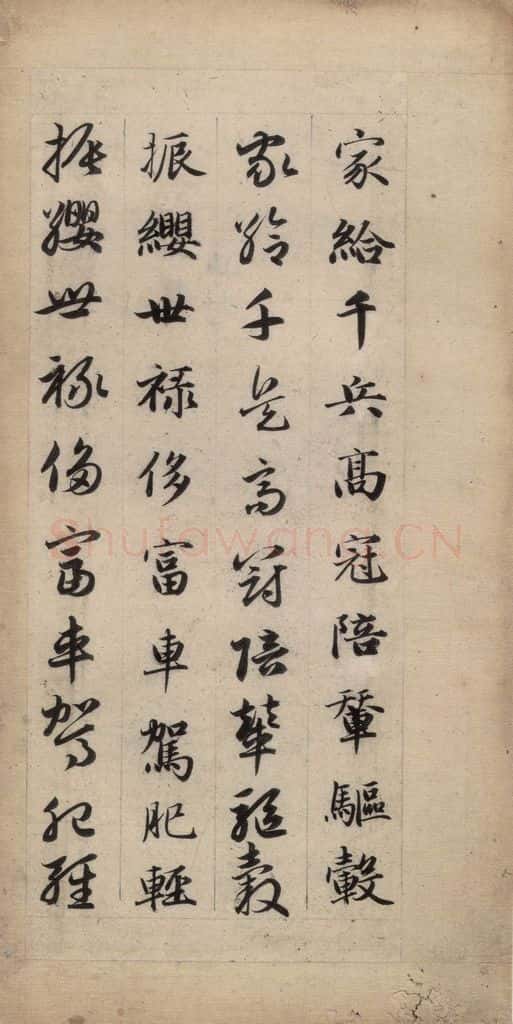 家給千兵高冠陪輦驅轂
家給千兵高冠陪輦驅轂
振纓世祿侈富車駕肥輕
振纓世祿侈富車駕肥輕
Shufawang.CN